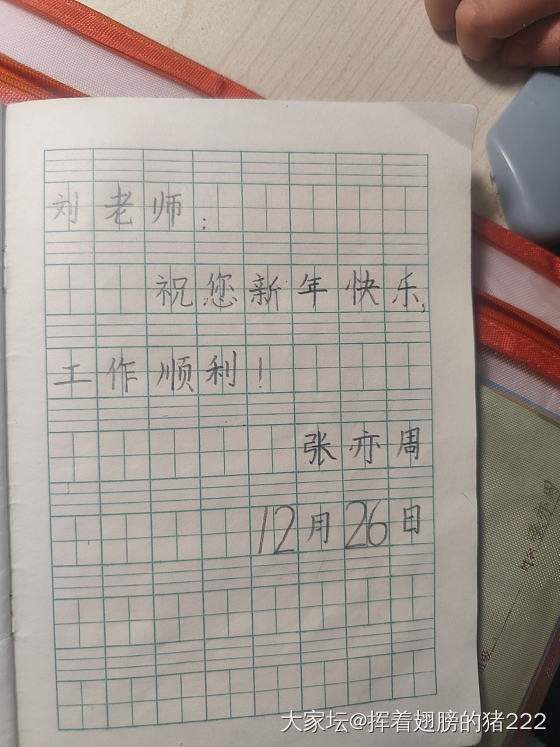 刘老师：
祝您新年快乐,
工作顺利！
张亦周
12月26日
姓名
大家坛@挥着翅膀的猪222